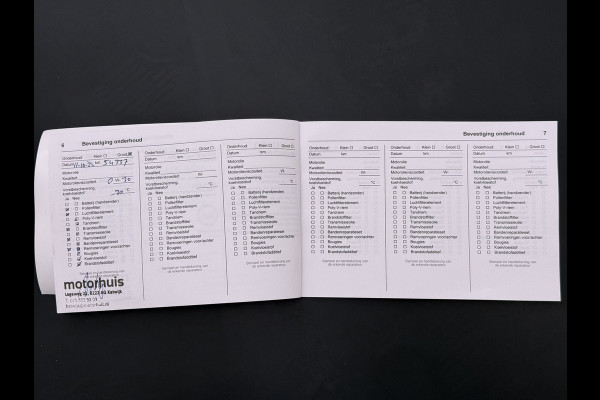 6 Bevestiging onderhoud
Onderhoud: Klein Groot
Datum km 54737
Motorolie
Kwaliteit
Motoroliesoort
Vorstbescherming
koelvloeistof -30 °C
Ja Nee
Batterij (handzender)
Pollenfilter
Luchtfilterelement
Poly-V-riem
Tandriem
Brandstoffilter
Transmissieolie
Remvloeistof
Bandenreparatieset
Remvoeringen voor/achter
Bougies
Koelvloeistof
Brandstofadditief
Stempel en handtekening van
de erkende reparateur
motorhuis
Onderhoud: Klein Groot
Datum km
Motorolie
Kwaliteit
Motoroliesoort W-
Vorstbescherming
koelvloeistof °C
Ja Nee
Batterij (handzender)
Pollenfilter
Luchtfilterelement
Poly-V-riem
Tandriem
Brandstoffilter
Transmissieolie
Remvloeistof
Bandenreparatieset
Remvoeringen voor/achter
Bougies
Koelvloeistof
Brandstofadditief
Stempel en handtekening van
de erkende reparateur
Onderhoud: Klein Groot
Datum km
Motorolie
Kwaliteit
Motoroliesoort W-
Vorstbescherming
koelvloeistof °C
Ja Nee
Batterij (handzender)
Pollenfilter
Luchtfilterelement
Poly-V-riem
Tandriem
Brandstoffilter
Transmissieolie
Remvloeistof
Bandenreparatieset
Remvoeringen voor/achter
Bougies
Koelvloeistof
Brandstofadditief
Stempel en handtekening van
de erkende reparateur
Bevestiging onderhoud 7
Onderhoud: Klein Groot
Datum km
Motorolie
Kwaliteit
Motoroliesoort W-
Vorstbescherming
koelvloeistof °C
Ja Nee
Batterij (handzender)
Pollenfilter
Luchtfilterelement
Poly-V-riem
Tandriem
Brandstoffilter
Transmissieolie
Remvloeistof
Bandenreparatieset
Remvoeringen voor/achter
Bougies
Koelvloeistof
Brandstofadditief
Stempel en handtekening van
de erkende reparateur
Onderhoud: Klein Groot
Datum km
Motorolie
Kwaliteit
Motoroliesoort W-
Vorstbescherming
koelvloeistof °C
Ja Nee
Batterij (handzender)
Pollenfilter
Luchtfilterelement
Poly-V-riem
Tandriem
Brandstoffilter
Transmissieolie
Remvloeistof
Bandenreparatieset
Remvoeringen voor/achter
Bougies
Koelvloeistof
Brandstofadditief
Stempel en handtekening van
de erkende reparateur
Onderhoud: Klein Groot
Datum km
Motorolie
Kwaliteit
Motoroliesoort W-
Vorstbescherming
koelvloeistof °C
Ja Nee
Batterij (handzender)
Pollenfilter
Luchtfilterelement
Poly-V-riem
Tandriem
Brandstoffilter
Transmissieolie
Remvloeistof
Bandenreparatieset
Remvoeringen voor/achter
Bougies
Koelvloeistof
Brandstofadditief
Stempel en handtekening van
de erkende reparateur